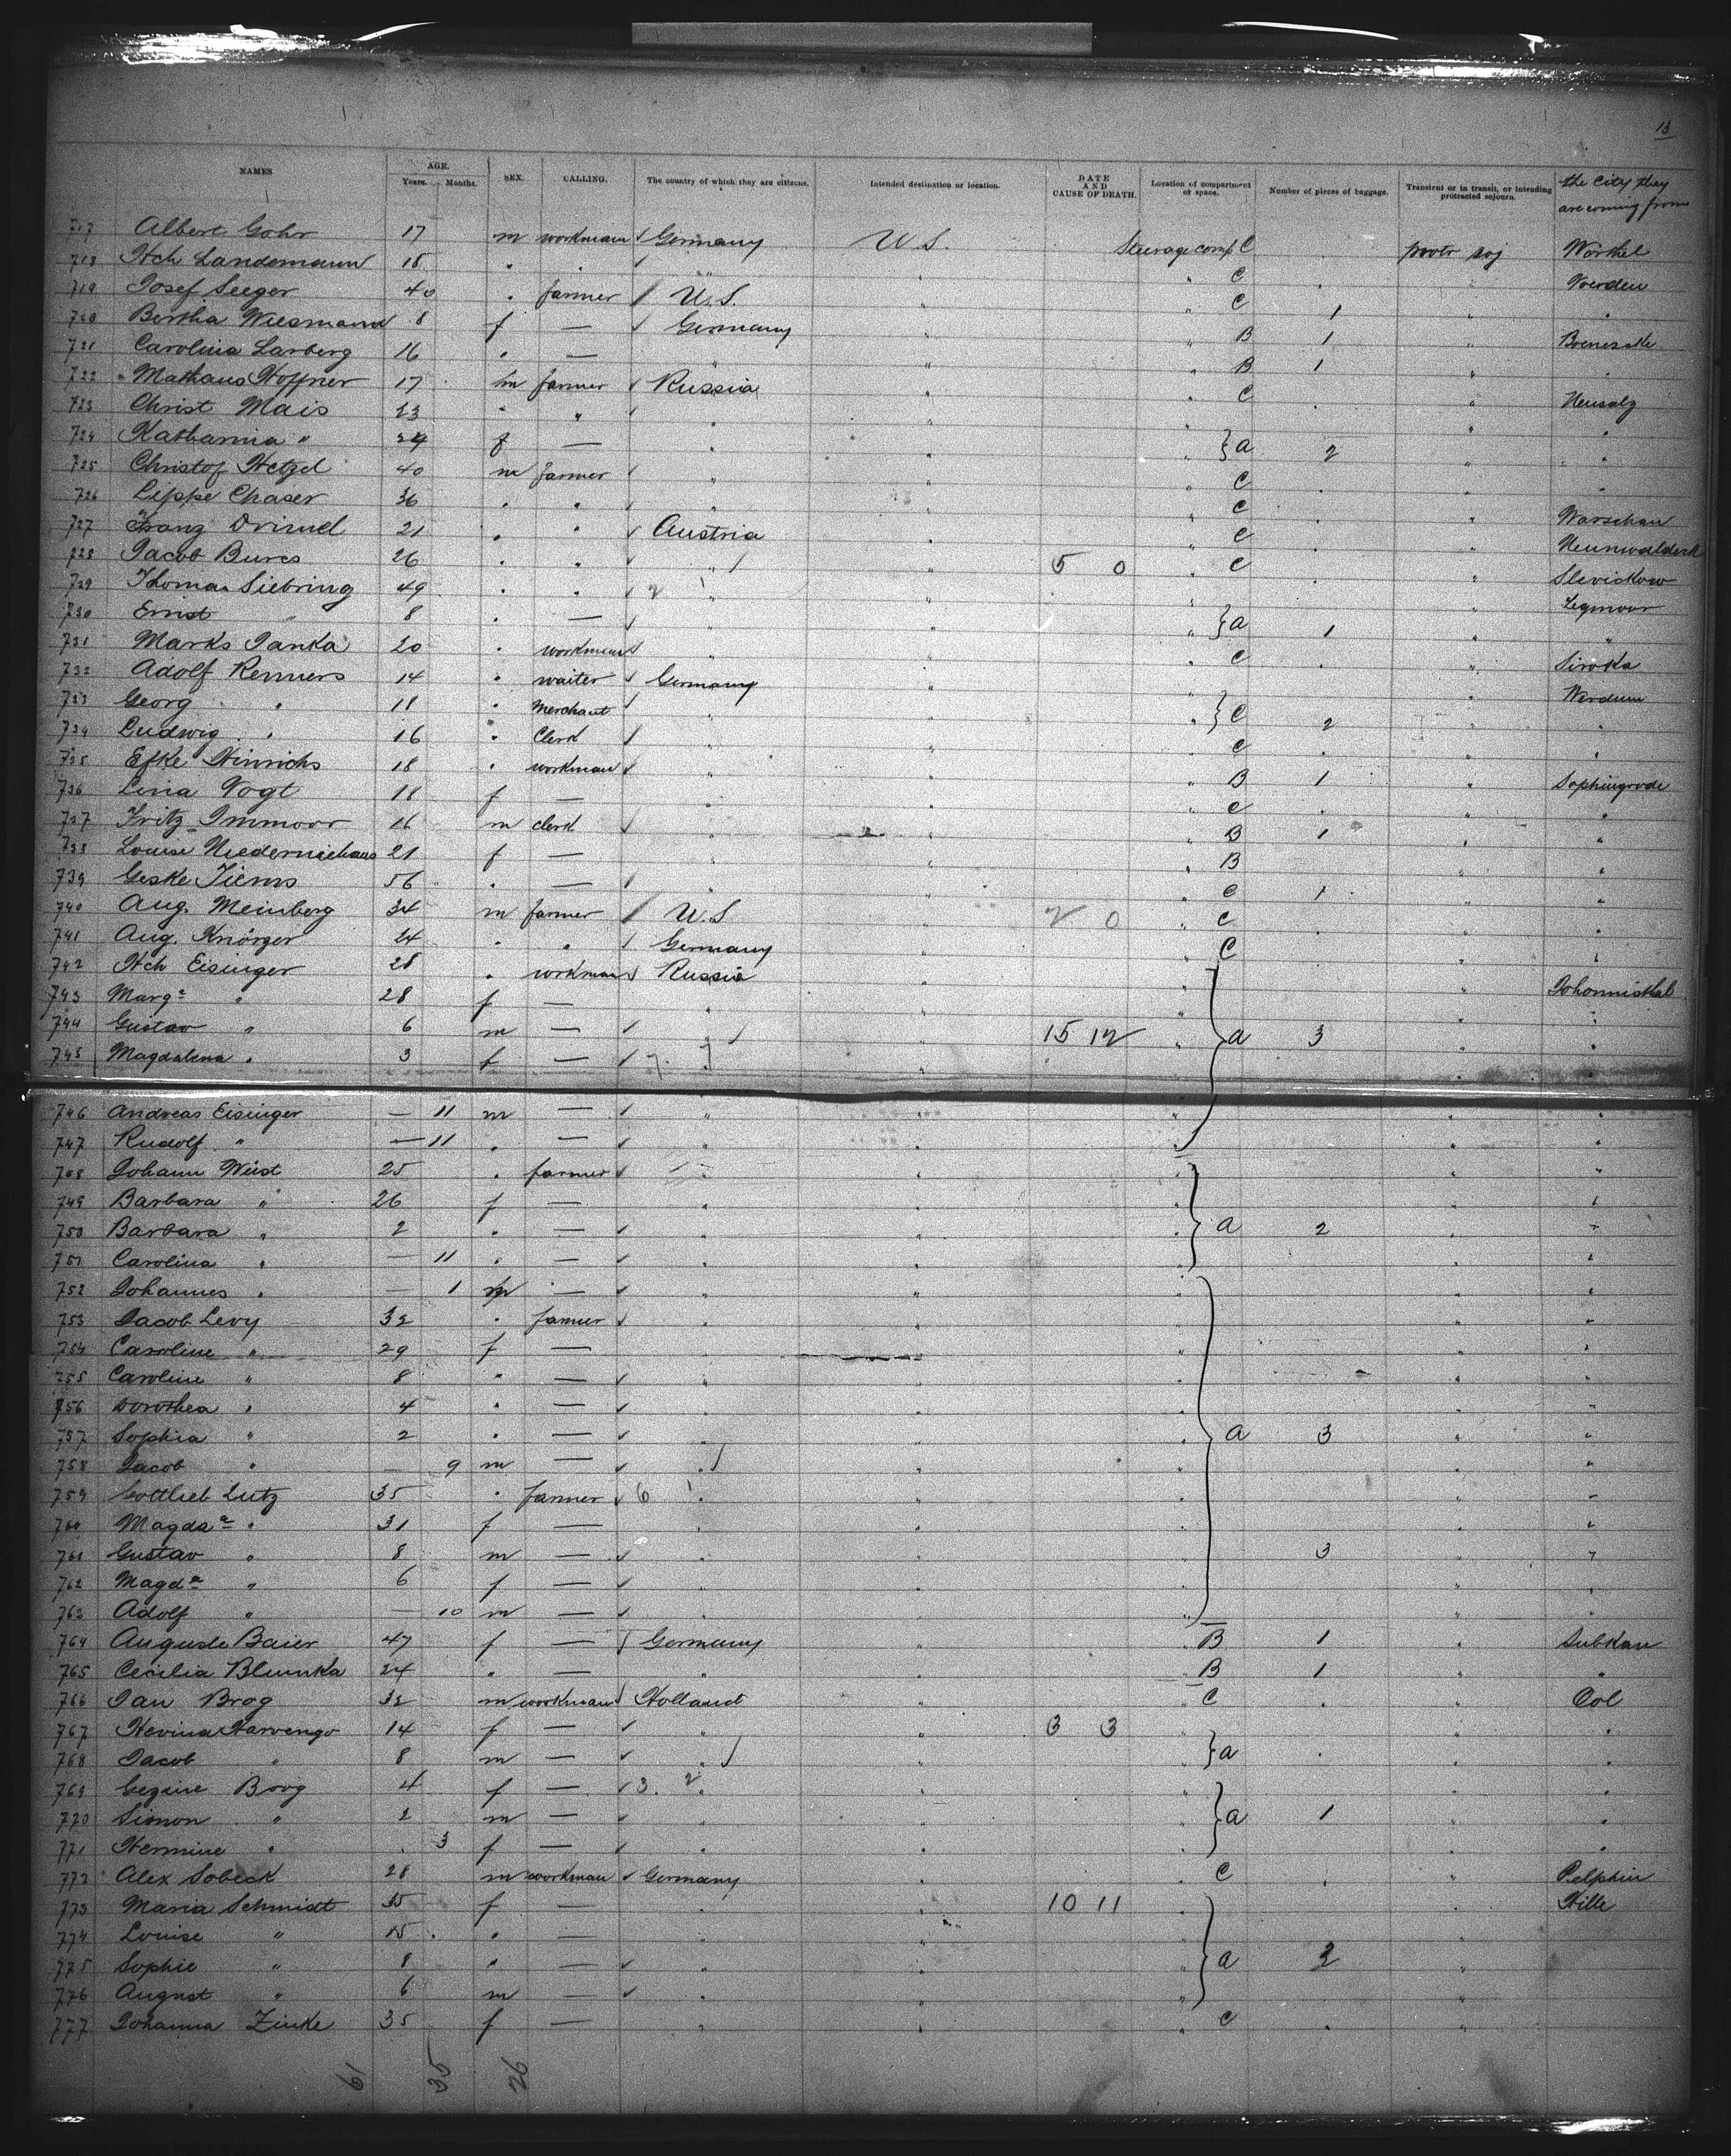 13
NAMES AGE. Years. Months. SEX. CALLING. The country of which they are citizens. Intended destination or location. DATE AND CAUSE OF DEATH. Location of compartment or space. Number of pieces of baggage. Transient or in transit, or intending protracted sojourn. the City they are coming from
717 Albert Gohr 17 m workman Germany U.S. Steerage comp C soj
718 Hch Landemann 18 " " " " C " "
719 Josef Seeger 40 " farmer U.S. " " C 1 " "
720 Bertha 8 f — Germany " " B 1 "
721 Carolina Larberg 16 " — " " " B 1 " "
722 Mathaus Hoffner 17 m farmer Russia " " C " Neusalz
723 Christ Mais 23 " " " " " "
724 Katharina " 24 f — " " " } a 2 " "
725 Christof Hetzel 40 m farmer " " " C " "
726 Leppe Chaser 36 " " " " " C " Warschau
727 Franz Drimel 21 " " Austria " " C "
728 Jacob Bures 26 " " " " 5 0 " C "
729 Thomas Siebring 49 " " 2 " " "
730 Ernst " 8 " — " " " } a 1 " "
731 Marks Janka 20 " workman " " " C " Siroka
732 Adolf Remmers 14 " waiter Germany " " Werdum
733 Georg " 18 " Merchant " " " } C 2 " "
734 Ludwig " 16 " Clerk " " " C " "
735 Efke Hinrichs 18 " workman " " " B 1 "
736 Lina Vogt 18 f — " " " C " "
737 Fritz Immoor 16 m clerk " " " B 1 " "
738 Louise Niederniehaus 21 f — " " " B " "
739 Geske Tiems 56 " — " " " C 1 " "
740 Aug. Meinberg 34 m farmer U.S " 2 0 " C " "
741 Aug. Knörzer 24 " " Germany " " C " "
742 Hch Eisinger 28 " workman Russia " " " Johannisthal
743 Marga " 28 f — " " " " "
744 Gustav " 6 m — " " 15 12 " } a 3 " "
745 Magdalena " 3 f — 7 7 " " " "
746 Andreas Eisinger — 11 m — " " " " "
747 Rudolf " — 11 " — " " " " "
748 Johann Weist 25 " farmer " " " " "
749 Barbara " 26 f — " " " " "
750 Barbara " 2 " — " " " } a 2 " "
751 Carolina " — 11 " — " " " " "
752 Johannes " — 1 m — " " " " "
753 Jacob Levy 32 " farmer " " " " "
754 Caroline " 29 f — " " " " "
755 Caroline " 8 " — " " " " "
756 Dorothea " 4 " — " " " " "
757 Sophia " 2 " — " " " } a 3 " "
758 Jacob " — 9 m — " " " " "
759 Gottlieb Lutz 35 " farmer 6 " " " " "
760 Magdaa " 31 f — " " " " "
761 Gustav " 8 m — " " " 3 " "
762 Magda " 6 f — " " " " "
763 Adolf " — 10 m — " " " " "
764 Auguste Baier 47 f — Germany " " B 1 " Subkau
765 Cecilia Blumka 24 " — " " " B 1 " "
766 Jan Brog 32 m workman Holland " " C " Col
767 Hevina Harvengo 14 f — " " 3 3 " " "
768 Jacob " 8 m — " " " } a " "
769 Gezine Boog 4 f — 3 2 " " " " "
770 Simon " 2 m — " " " } a 1 " "
771 Hermine " 3 f — " " " " "
772 Alex Sobeck 28 m workman Germany " " C " Pelplin
773 Maria Schmidt 35 f — " " 10 11 " " Hille
774 Louise " 15 " — " " " "
775 Sophie " 8 " — " " " } a 2 "
776 August " 6 m — " " " "
777 Johanna Zinke 35 f — " " " C "
61 35 26